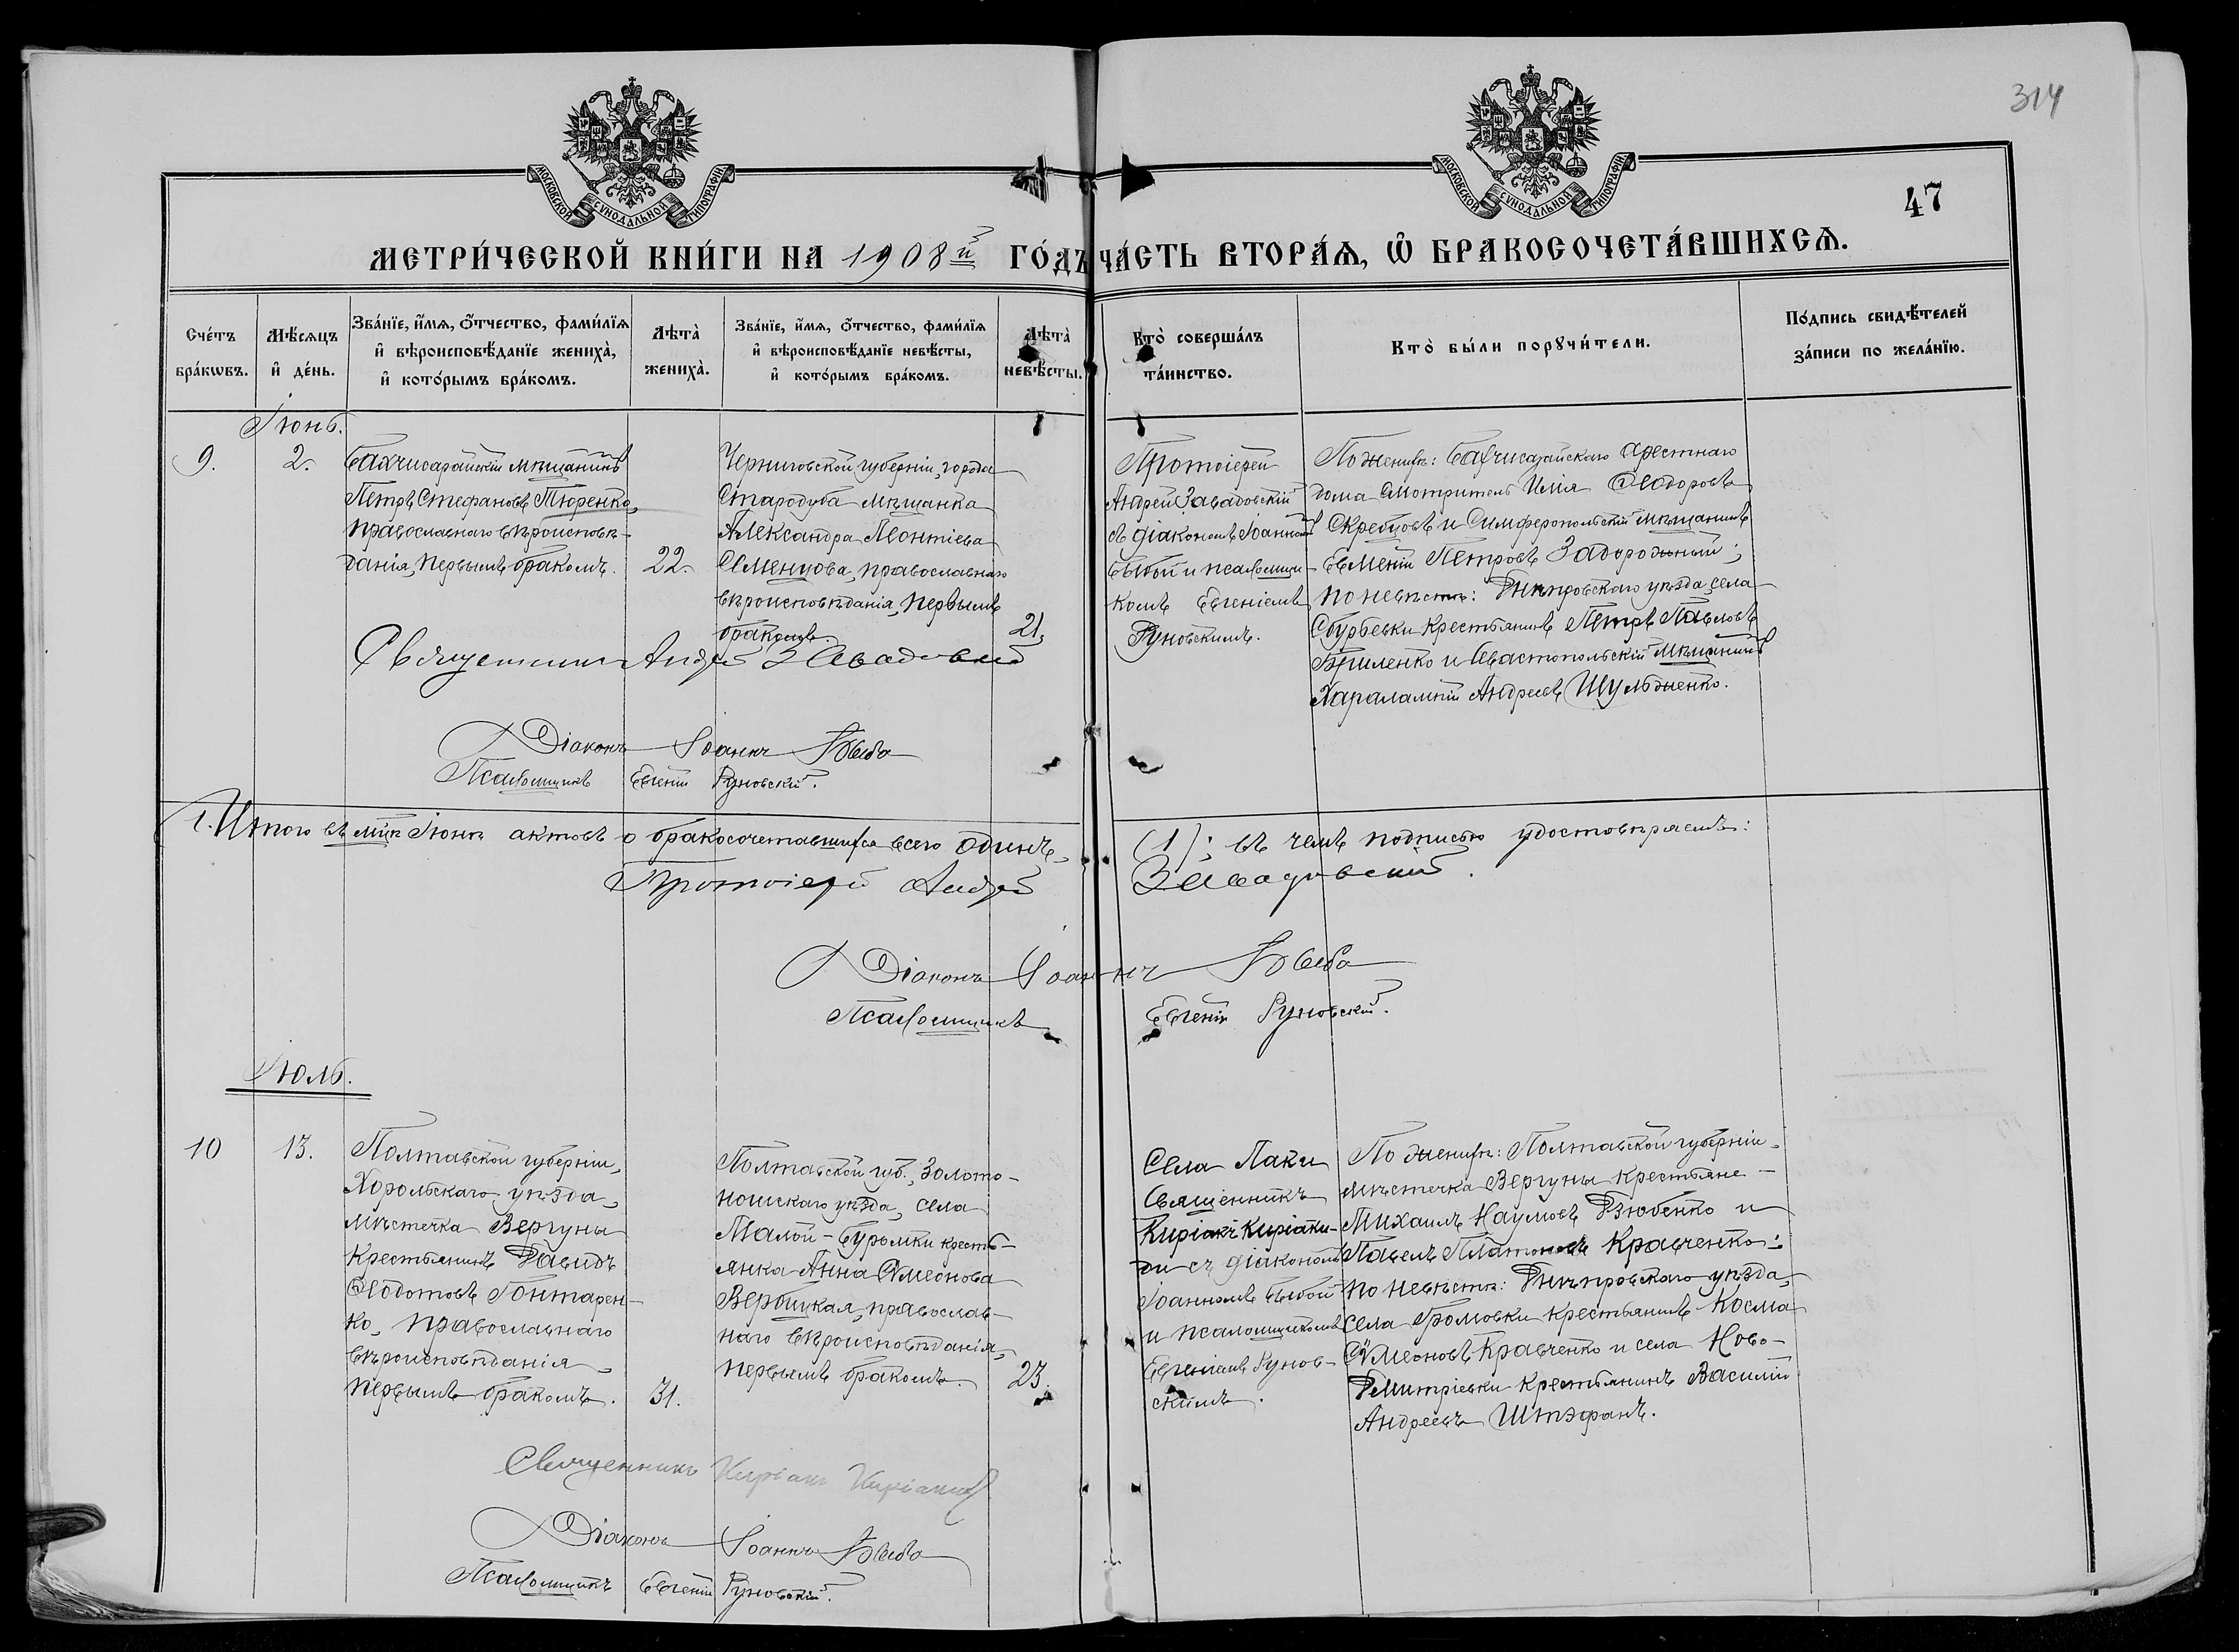 314
МОСКОВСКОЙ СѴНОДАЛЬНОЙ ТИПОГРАФІИ
МОСКОВСКОЙ СѴНОДАЛЬНОЙ ТИПОГРАФІИ
47
МЕТРИ́ЧЕСКОЙ КНИ́ГИ НА 1908й ГО́ДЪ ЧА́СТЬ ВТОРА́Ѧ, Ѽ БРАКОСОЧЕТА́ВШИХСѦ.
Сче́тъ
бра́кѡвъ.
Мѣ́сѧцъ
и҆ де́нь.
Зва́нїе, и҆́мѧ, ѻ҆́тчество, фами́лїѧ
и҆ вѣроисповѣ́данїе жениха̀,
и҆ кото́рымъ бра́комъ.
Лѣта̀
жениха̀.
Зва́нїе, и҆́мѧ, ѻ҆́тчество, фами́лїѧ
и҆ вѣроисповѣ́данїе невѣ́сты,
и҆ кото́рымъ бра́комъ.
Лѣта̀
невѣ́сты.
Кто̀ соверша́лъ
та́инство.
Кто̀ бы́ли порꙋчи́тели.
По́дпись свидѣ́телей
за́писи по жела́нїю.
Іюнь.
9.
2.
Бахчисарайскій мѣщанинъ
Петръ Стефановъ Тюренко,
православнаго вѣроисповѣ-
данія, первымъ бракомъ.
22.
Черниговской губерніи, города
Стародуба мѣщанка
Александра Леонтіева
Семенцова, православнаго
вѣроисповѣданія, первымъ
бракомъ.
21.
Протоіерей
Андрей Завадовскій
съ діакономъ Іоанномъ
и псаломщи-
комъ Евгеніемъ
Руновскимъ.
По женихѣ: Бахчисарайскаго арестнаго
дома смотритель Илія Ѳеодоровъ
Скрепцовъ и Симферопольскій мѣщанинъ
Евменій Петровъ Задорожный;
по невѣстѣ: Днѣпровскаго уѣзда села
Сбурьевки крестьянинъ Петръ Павловъ
и Севастопольскій мѣщанинъ
Харалампій Андреевъ Шульженко.
Священникъ Андрей Завадовскій
Діаконъ Іоаннъ
Псаломщикъ Евгеній Руновскій.
Итого въ мцѣ Іюнѣ актовъ о бракосочетавшихся всего одинъ,
(1); въ чемъ подписью удостовѣряемъ:
Протоіерей Андрей Завадовскій.
Діаконъ Іоаннъ
Псаломщикъ Евгеній Руновскій.
Іюль.
10
13.
Полтавской губерніи,
Хорольскаго уѣзда,
мѣстечка Вергуны
крестьянинъ Давидъ
Ѳеодотовъ Гонтарен-
ко, православнаго
вѣроисповѣданія,
первымъ бракомъ.
31.
Полтавской губ., Золото-
ношскаго уѣзда, села
Малой-Буромки кресть-
янка Анна Сѵмеонова
Вербицкая, православ-
наго вѣроисповѣданія,
первымъ бракомъ.
23.
Села Лаки
Священникъ
Киріакъ Киріаки-
ди съ діакономъ
Іоанномъ
и псаломщикомъ
Евгеніемъ Рунов-
скимъ.
По женихѣ: Полтавской губерніи,
мѣстечка Вергуны крестьяне
Михаилъ Наумовъ Дзюбенко и
Павелъ Платоновъ Кравченко;
по невѣстѣ: Днѣпровскаго уѣзда,
села Громовки крестьянинъ Косма
Сѵмеоновъ Кравченко и села Ново-
Дмитріевки крестьянинъ Василій
Андреевъ Штэфанъ.
Священникъ Киріакъ Киріакиди
Діаконъ Іоаннъ
Псаломщикъ Евгеній Руновскій.